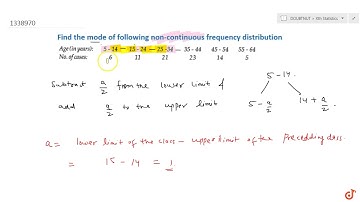 1338970
DOUBTNUT - 6th Statistics
Find the mode of following non-continuous frequency distribution
Age (in years): 5 - 14 15 - 24 25 - 34 35 - 44 45 - 54 55 - 64
No. of cases: 6 11 21 23 14 5
Subtract a/2 from the lower limit &
add a/2 to the upper limit
5 - 14
5 - a/2 14 + a/2
a = lower limit of the class - upper limit of the preceding class.
= 15 - 14 = 1